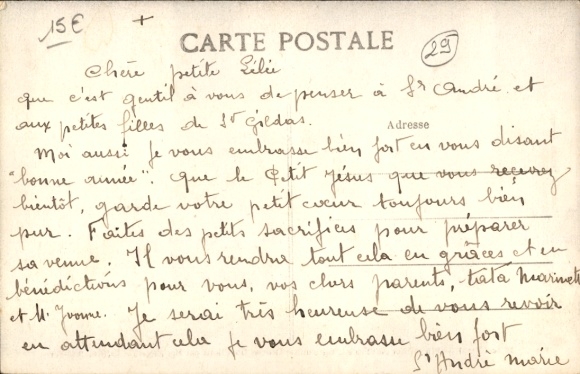 15€ +
CARTE POSTALE
29
Chère petite Lélie
que c'est gentil à vous de penser à Sr André et
aux petites filles de St Gildas.
Adresse
Moi aussi je vous embrasse bien fort en vous disant
"bonne année". Que le Petit Jésus que vous recevrez
bientôt, garde votre petit cœur toujours bien
pur. Faites des petits sacrifices pour préparer
sa venue. Il vous rendra tout cela en grâces et en
bénédictions pour vous, vos chers parents, tata Marinette
et M. Yvonne. Je serai très heureuse de vous revoir
en attendant cela je vous embrasse bien fort
Sr André Marie